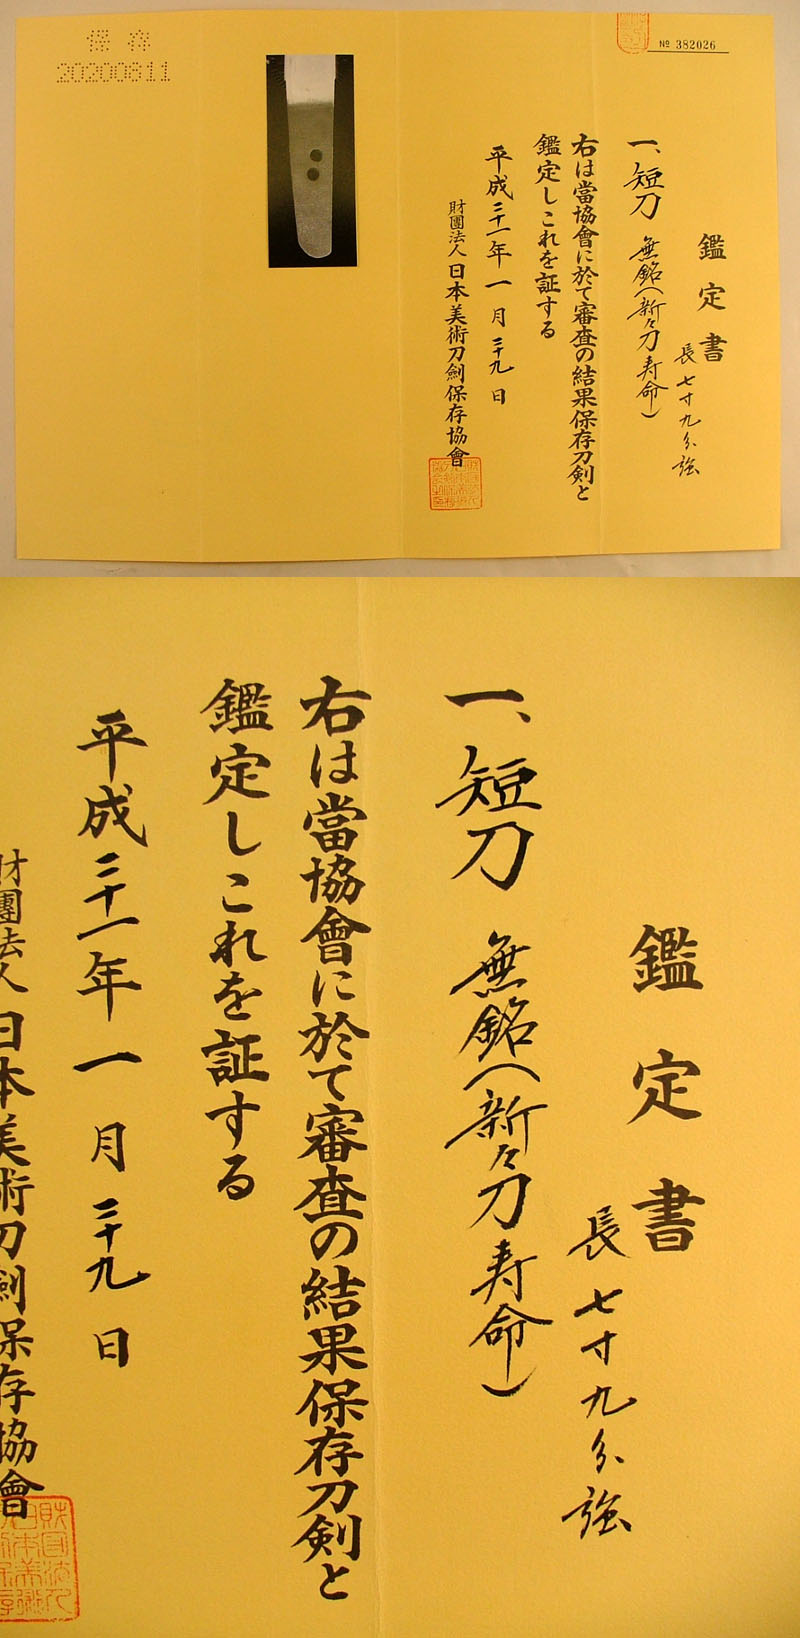 № 382026
鑑定書
長七寸九分強
一、短刀 無銘(新々刀寿命)
右は當協會に於て審査の結果保存刀剣と
鑑定しこれを証する
平成二十一年一月二十九日
財團法人日本美術刀劍保存協會
保存
鑑定書
長七寸九分強
一、短刀 無銘(新々刀寿命)
右は當協會に於て審査の結果保存刀剣と
鑑定しこれを証する
平成二十一年一月二十九日
財團法人日本美術刀劍保存協會